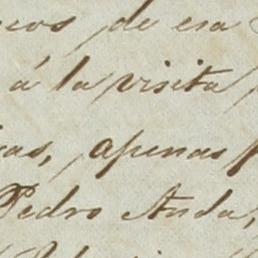 de esa
á la visita
apenas
Pedro Anda,